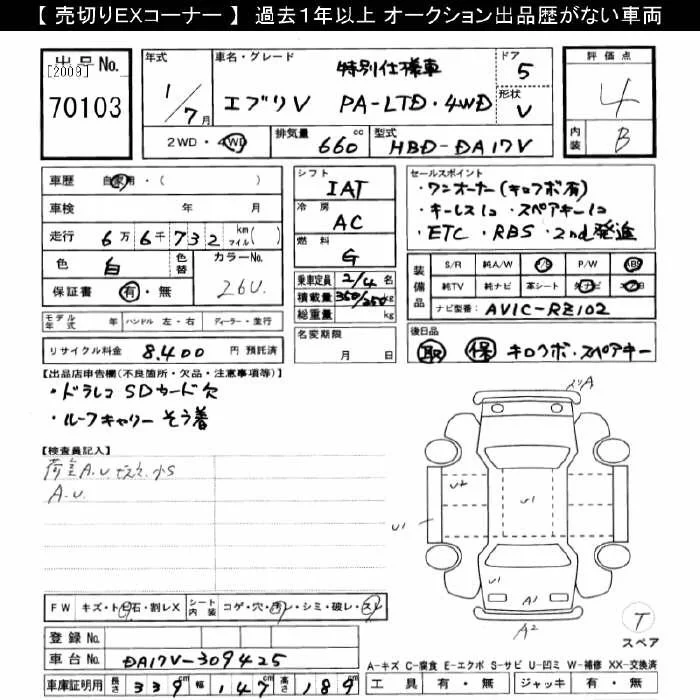 【 売切りEXコーナー 】 過去1年以上 オークション出品歴がない車両
出品No.
[2009]
70103
年式 1/7月
車名・グレード 特別仕様車
エブリV PA-LTD・4WD
ドア 5
形状 V
評価点 4
内装 B
2WD・4WD
排気量 660 cc
型式 HBD-DA17V
車歴 自家用・( )
車検 年 月
走行 6万6千732 km マイル( )
色 白 色替 カラーNo. 26U
保証書 有・無
シフト IAT
冷房 AC
燃料 G
乗車定員 2/4 名
積載量 350/250 kg
総重量 kg
セールスポイント
・ワンオーナー(キロクボ有)
・キーレス1コ ・スペアキー1コ
・ETC ・RBS ・2nd発進
装備品 S/R 純A/W P/S P/W AB
純TV 純ナビ 革シート 社ナビ
ナビ型番: AVIC-RZ102
モデル年式 年 ハンドル 左・右 ディーラー・並行
リサイクル料金 8,400 円 預託済
名変期限 月 日
後日品
取 保 キロクボ・スペアキー
【出品店申告欄(不良箇所・欠品・注意事項等)】
・ドラレコ SDカード欠
・ルーフキャリーそう着
【検査員記入】
荷室A.U. 小S
A.U.
A
U2
U1
U1
A1
A2
FW キズ・トビ石・割レX シート内装 コゲ・穴・汚レ・シミ・破レ・スレ
T
スペア
登録No.
車台No. DA17V-309425
A-キズ C-腐食 E-エクボ S-サビ U-凹ミ W-補修 XX-交換済
車庫証明用 長さ 339 cm 幅 147 cm 高さ 189 cm
工具 有・無 ジャッキ 有・無